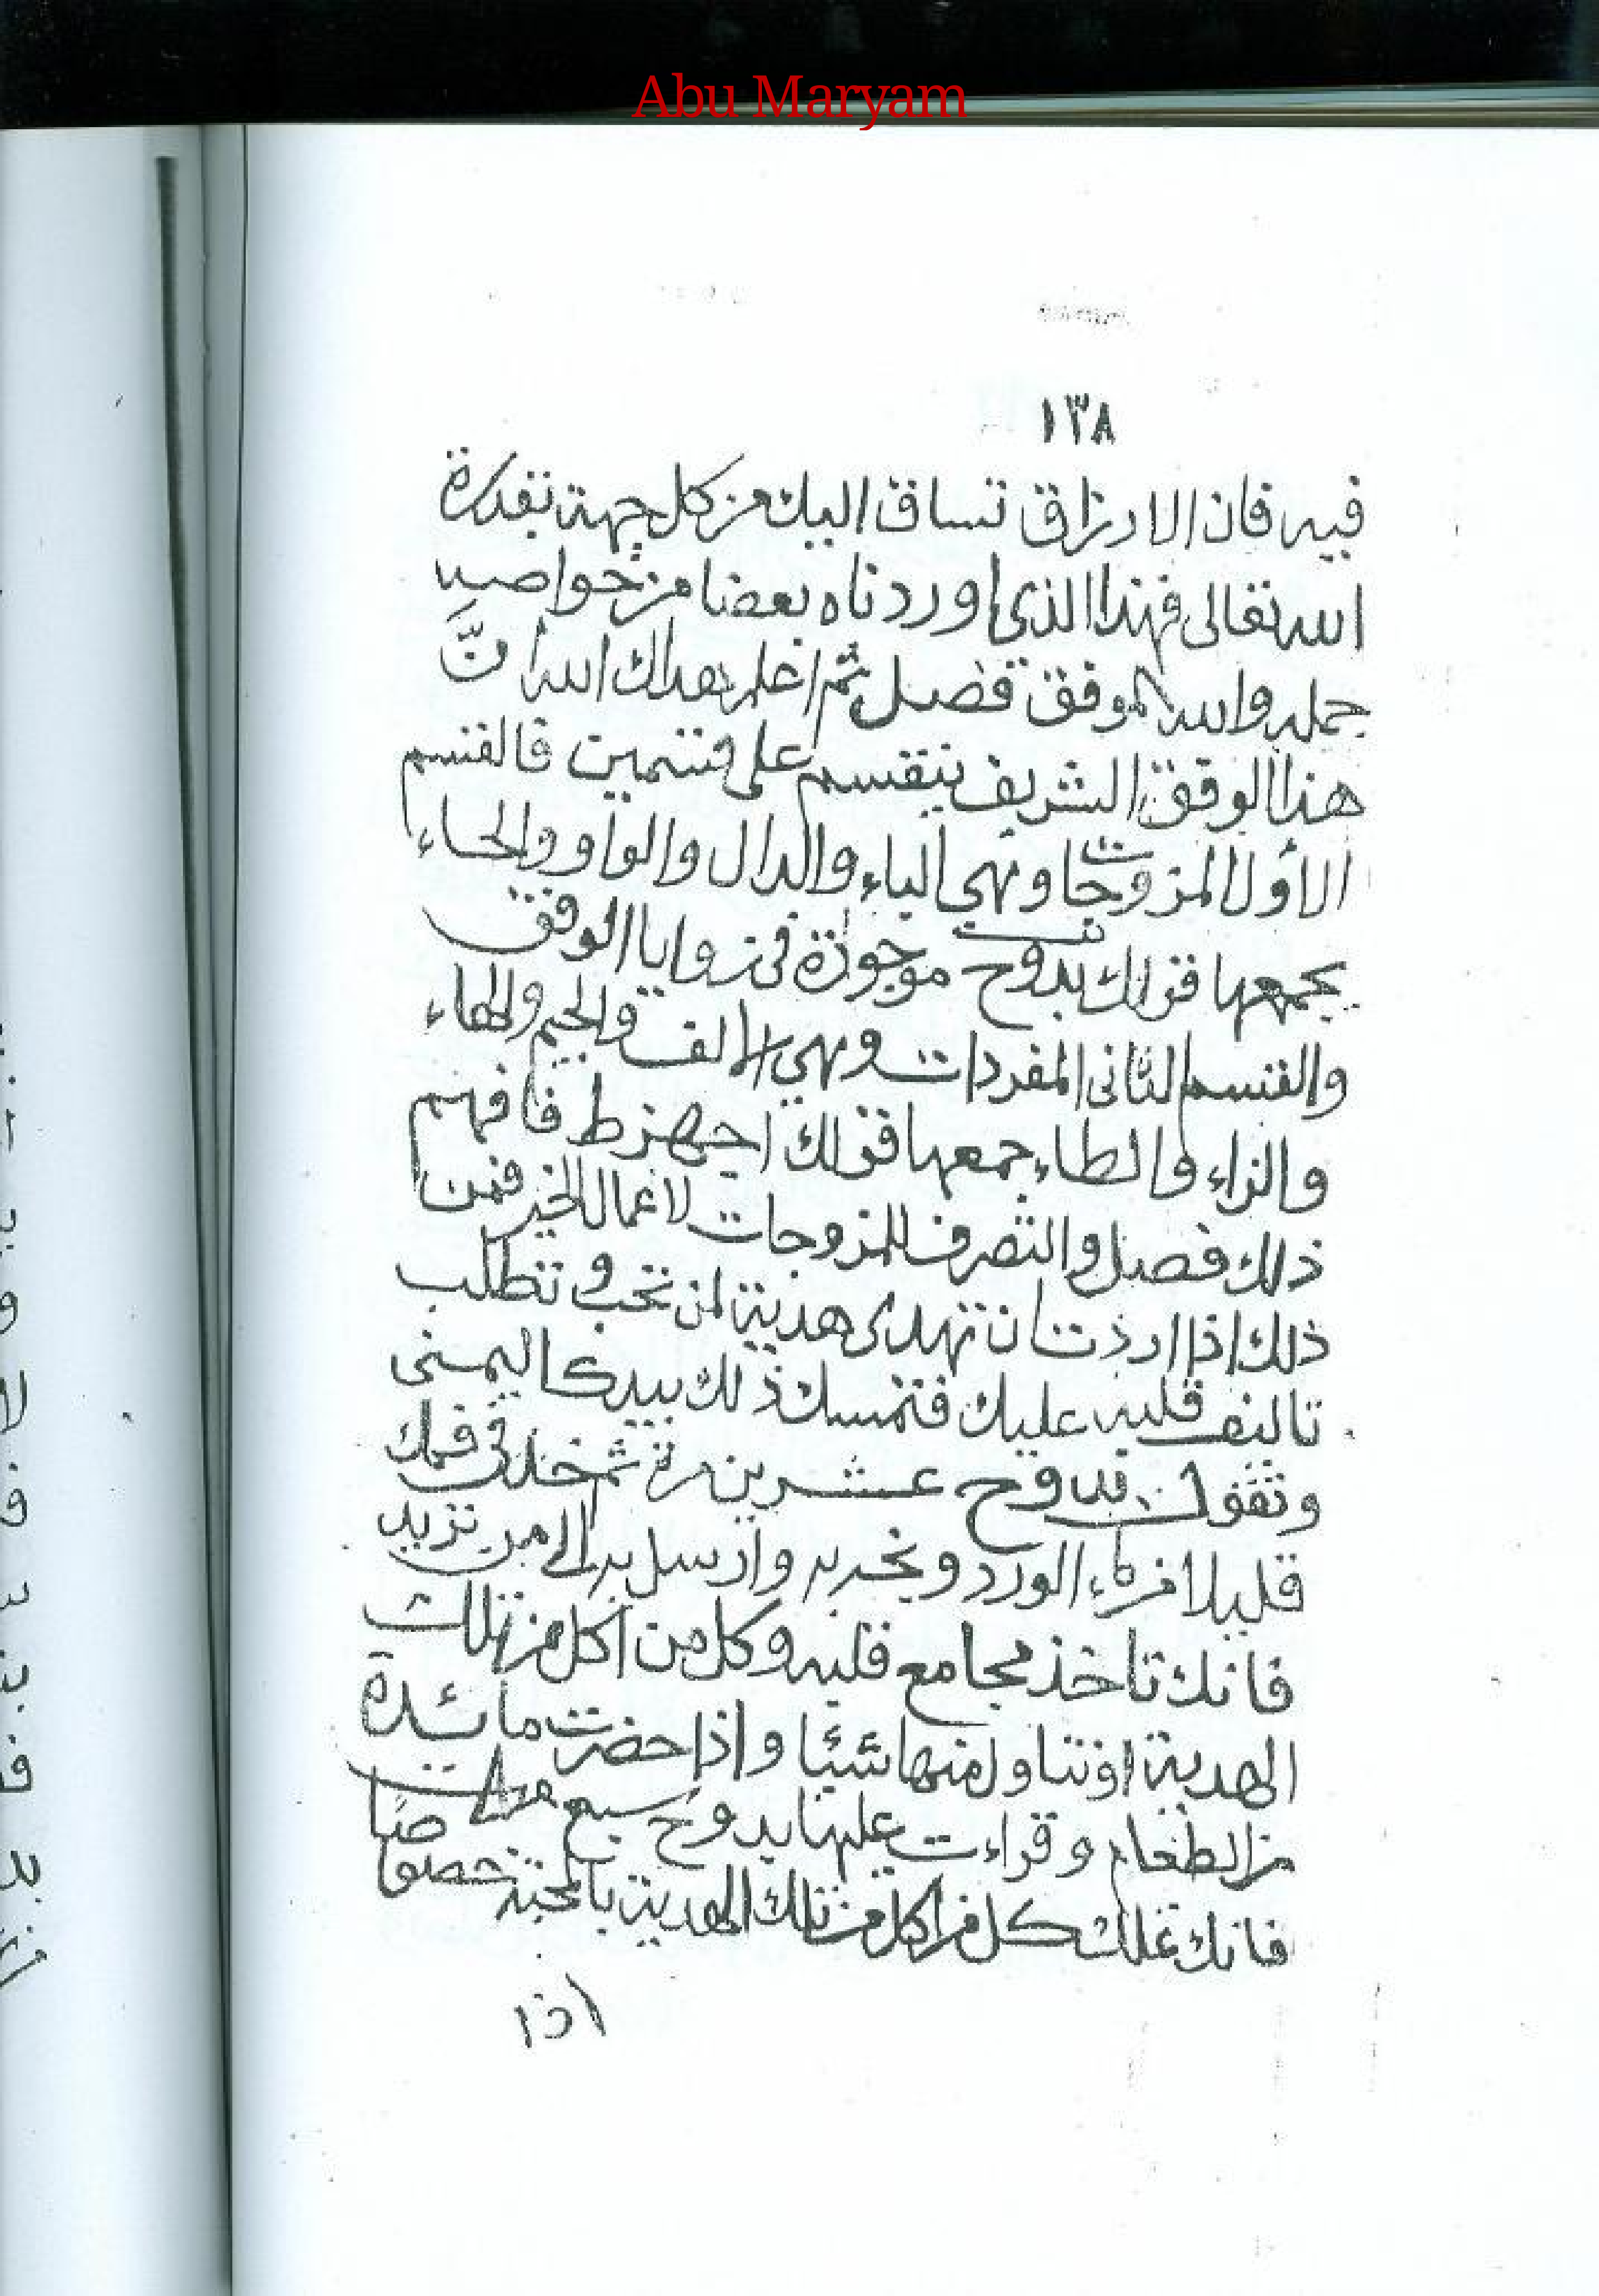 Abu Maryam
١٣٨
فيه فان الارزاق تساق اليك من كل جهة بقدرة
الله تعالى فهذا الذي اوردناه بعضا من خواصه
جمله والله الموفق فصل ثم اعلم هداك الله أنَّ
هذا الوفق الشريف ينقسم على قسمين فالقسم
الأول المزوجات وهي الباء والدال والواو والحاء
يجمعها قولك بدوح موجودة في زوايا الوفق
والقسم الثاني المفردات وهي الالف والجيم والهاء
والزاء والطاء جمعها قولك اجهزط فافهم
ذلك فصل والتصرف للمزوجات لاعمال الخير فمن
ذلك اذا اردت ان تهدى هدية لمن تحب وتطلب
تاليف قلبه عليك فتمسك ذلك بيدك اليمنى
وتقول بدوح عشرين مرة ثم خذ في فمك
قليلا من ماء الورد و به وارسل به الى من تريد
فانك تاخذ مجامع قلبه وكل من اكل من تلك
الهدية او تناول منها شيئا واذا حضرت مائدة
من الطعام وقراءت عليها بدوح سبع مرات
فانك تملك كل من اكل من تلك الهدية بالمحبة خصوصا
اذا